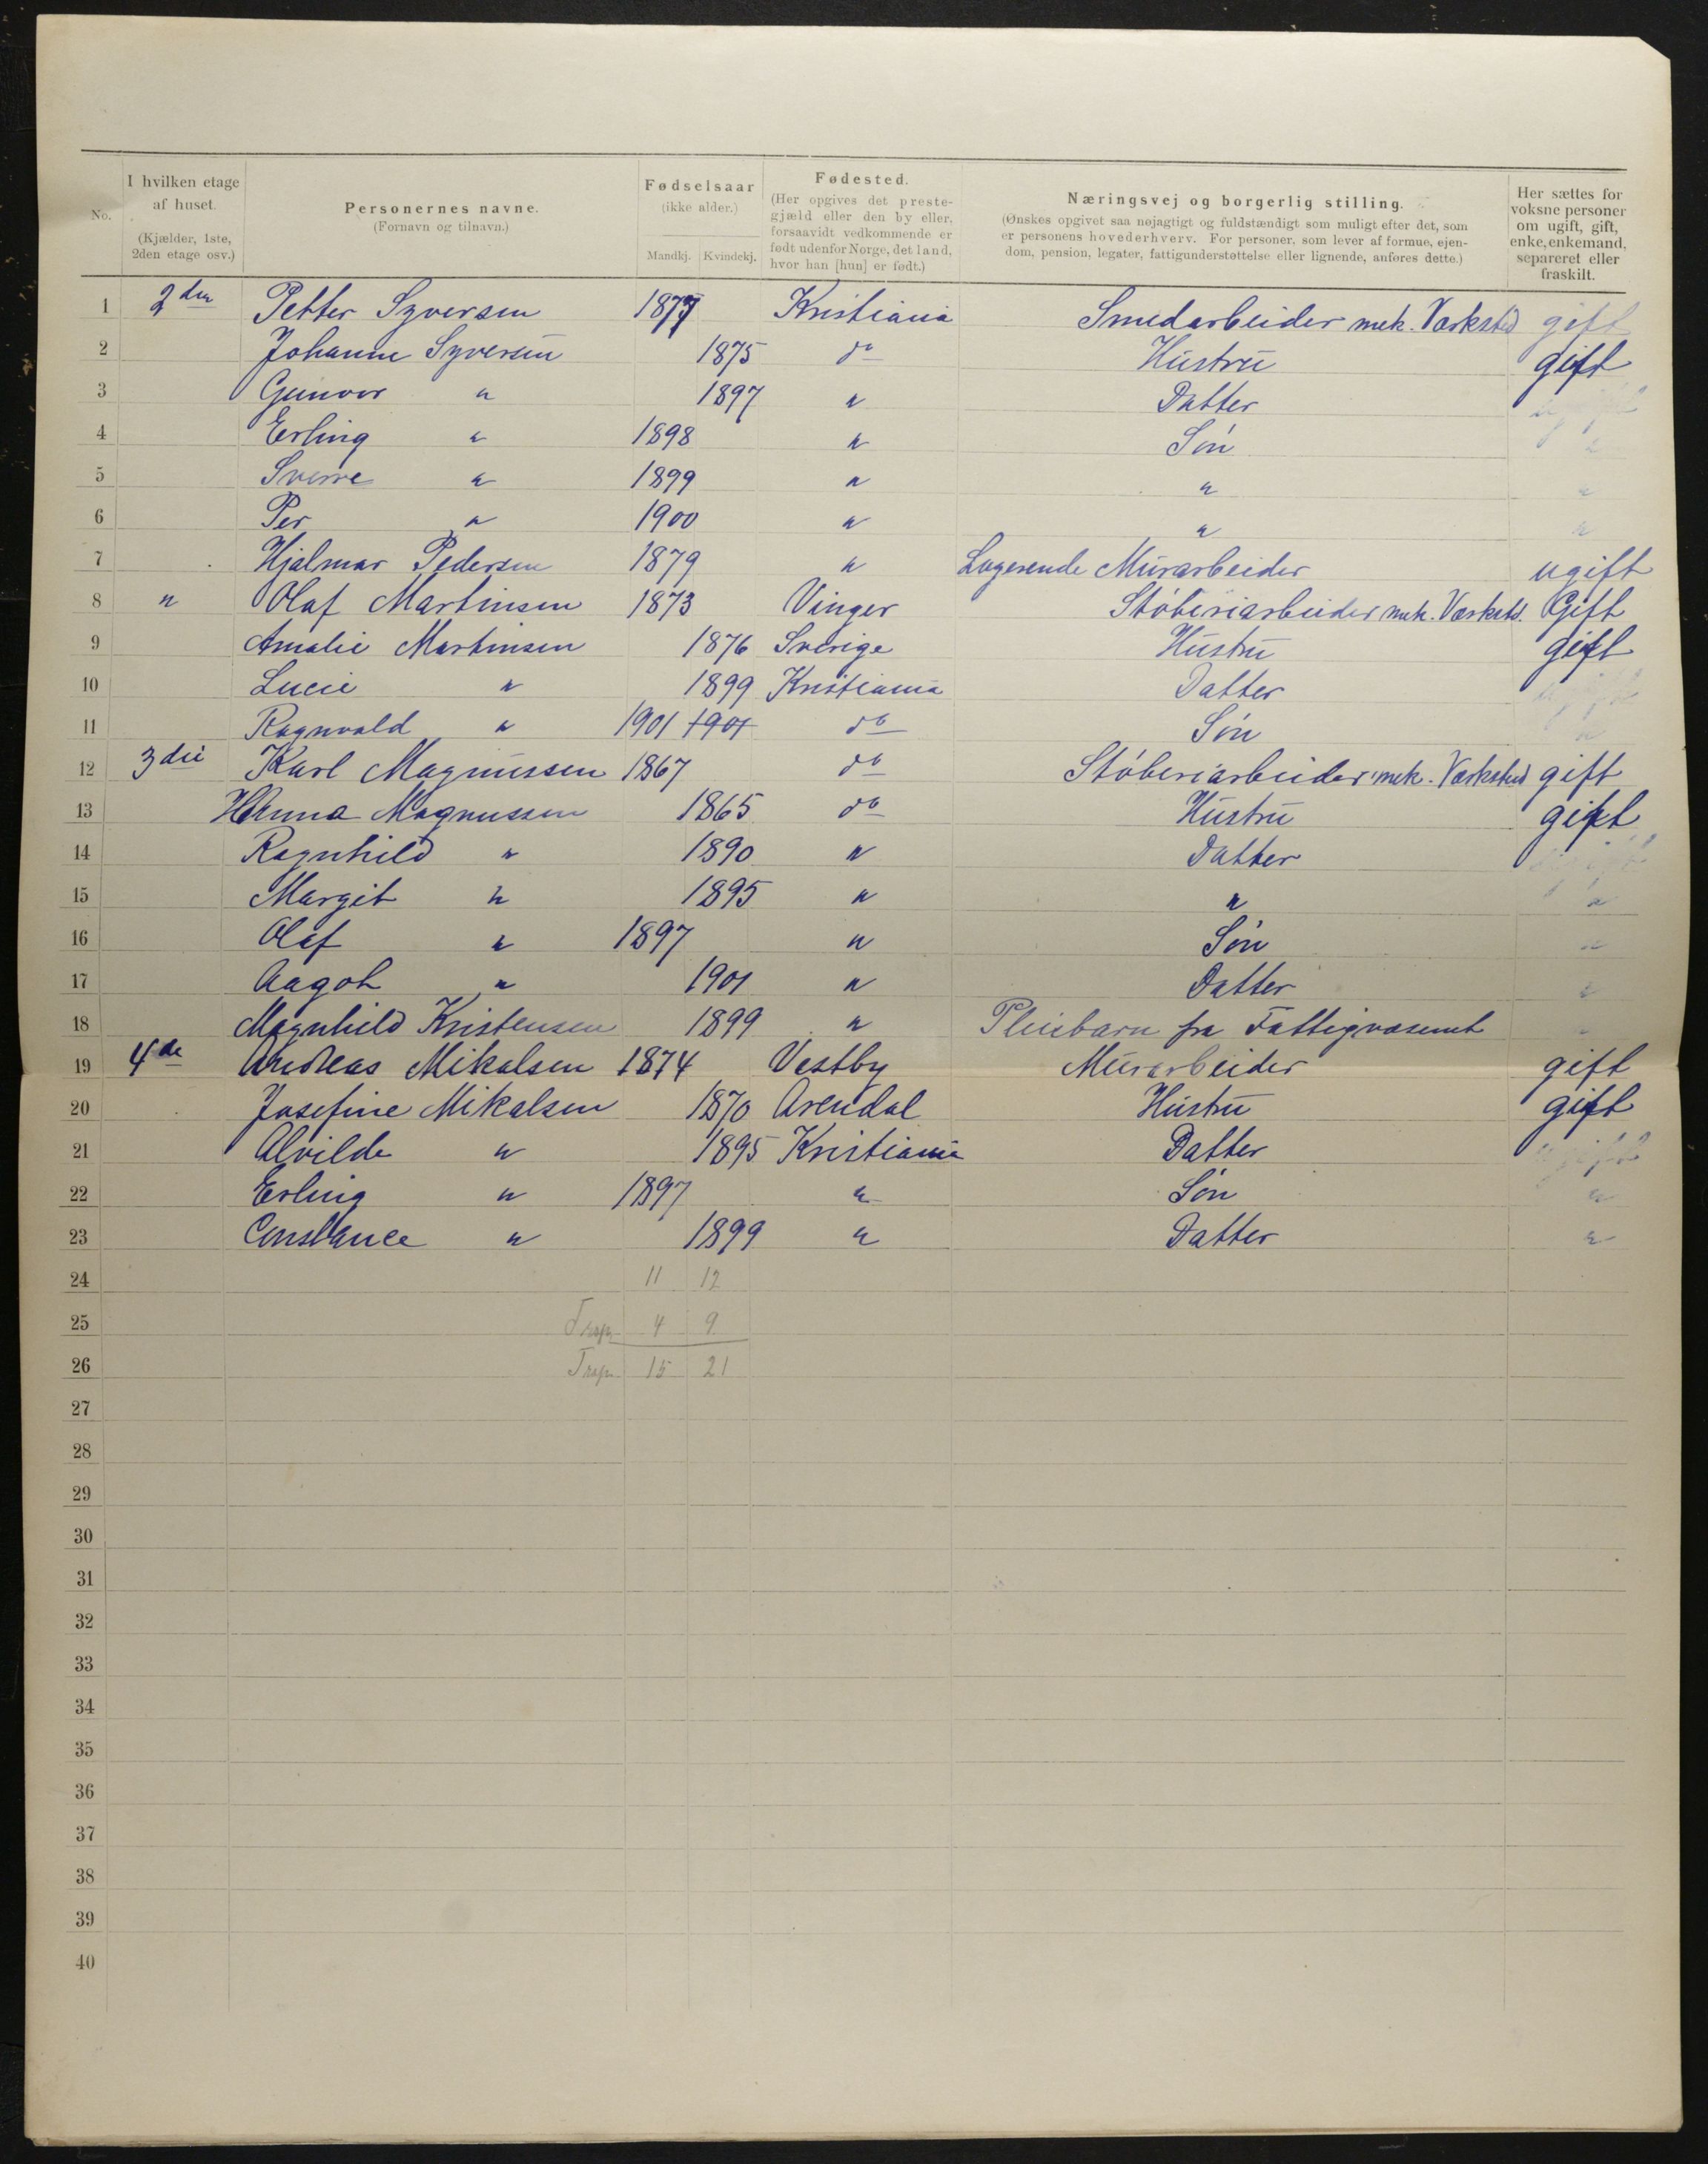 No.
I hvilken etage af huset. (Kjælder, 1ste, 2den etage osv.)
Personernes navne. (Fornavn og tilnavn.)
Fødselsaar (ikke alder.) Mandkj. Kvindekj.
Fødested. (Her opgives det prestegjæld eller den by eller, forsaavidt vedkommende er født udenfor Norge, det land, hvor han [hun] er født.)
Næringsvej og borgerlig stilling. (Ønskes opgivet saa nøjagtigt og fuldstændigt som muligt efter det, som er personens hovederhverv. For personer, som lever af formue, ejendom, pension, legater, fattigunderstøttelse eller lignende, anføres dette.)
Her sættes for voksne personer om ugift, gift, enke, enkemand, separeret eller fraskilt.
1 2den Petter Syversen 1877 Kristiania Smedarbeider mek. Værksted gift
2 Johanne Syversen 1875 do Hustru gift
3 Gunvor " 1897 " Datter ugift
4 Erling " 1898 " Søn "
5 Sverre " 1899 " " "
6 Per " 1900 " " "
7 Hjalmar Pedersen 1879 " Logerende Murarbeider ugift
8 " Olaf Martinsen 1873 Vinger Støberiarbeider mek. Værksted. Gift
9 Amalie Martinsen 1876 Sverige Hustru gift
10 Lucie " 1899 Kristiania Datter ugift
11 Ragnvald " 1901 1901 do Søn "
12 3die Karl Magnussen 1867 do Støberiarbeider mek. Værksted gift
13 Magnussen 1865 do Hustru gift
14 Ragnhild " 1890 " Datter ugift
15 Margit " 1895 " " "
16 Olaf " 1897 " Søn "
17 Aagot " 1901 " Datter "
18 Magnhild Kristensen 1899 " Pleiebarn fra Fattigvæsenet "
19 4de Andreas Mikalsen 1874 Vestby Murarbeider gift
20 Josefine Mikalsen 1870 Arendal Hustru gift
21 Alvilde " 1895 Kristiania Datter ugift
22 Erling " 1897 " Søn "
23 Constance " 1899 " Datter "
24 11 12
25 4 9
26 15 21
27
28
29
30
31
32
33
34
35
36
37
38
39
40